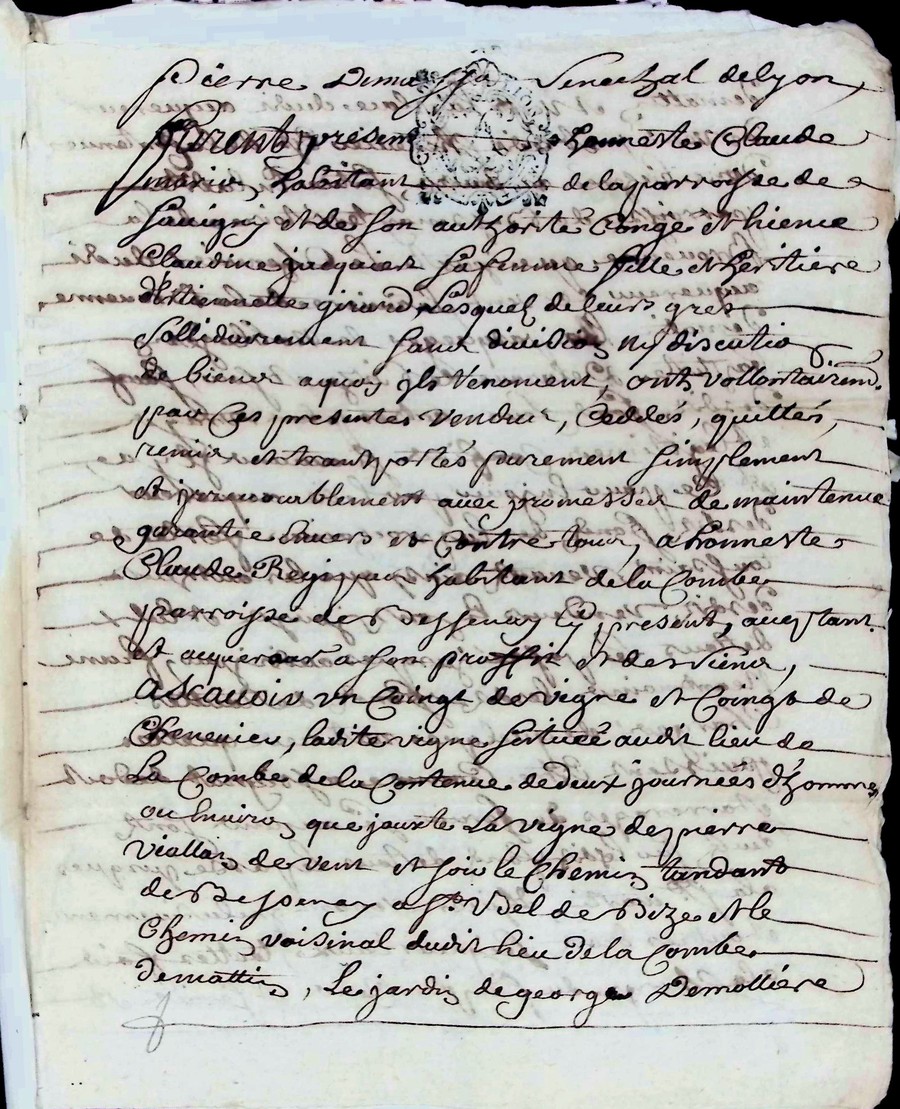 pierre Dema Senechal de lyon
furent present honneste Claude
marion habitant de la parroisse de
Sauigny et de son authorité Congé et licence
Claudine jacquier sa femme fille et heritiere
d'Estiennette girard, Lesquels de leurs grés
Sollidairement sans diuision ny discution
de biens a quoy jls renoncent, ont vollontairem.
par Ces presentes vendus, Ceddés, quittés,
remis et transportés purement simplement
et jrreuocablement auec promesses de maintenue
garantie enuers et Contre tous, a honneste
Claude habitant de la Combe
parroisse de Bessenay Cy present, acceptant
et acquereur a son proffit et des siens,
Ascauoir vn Coingt de vigne et Coingt de
Cheneuier, ladite vigne scituée audit lieu de
La Combe de la Contenue de deux journées d'homme
ou enuiron que jouxte La vigne de pierre
viallon de vent et soir le Chemin tandant
de Bessenay a St. Bel de Bize et le
Chemin voisinal dudit lieu de la Combe
de mattin, Le jardin de george Demolliere